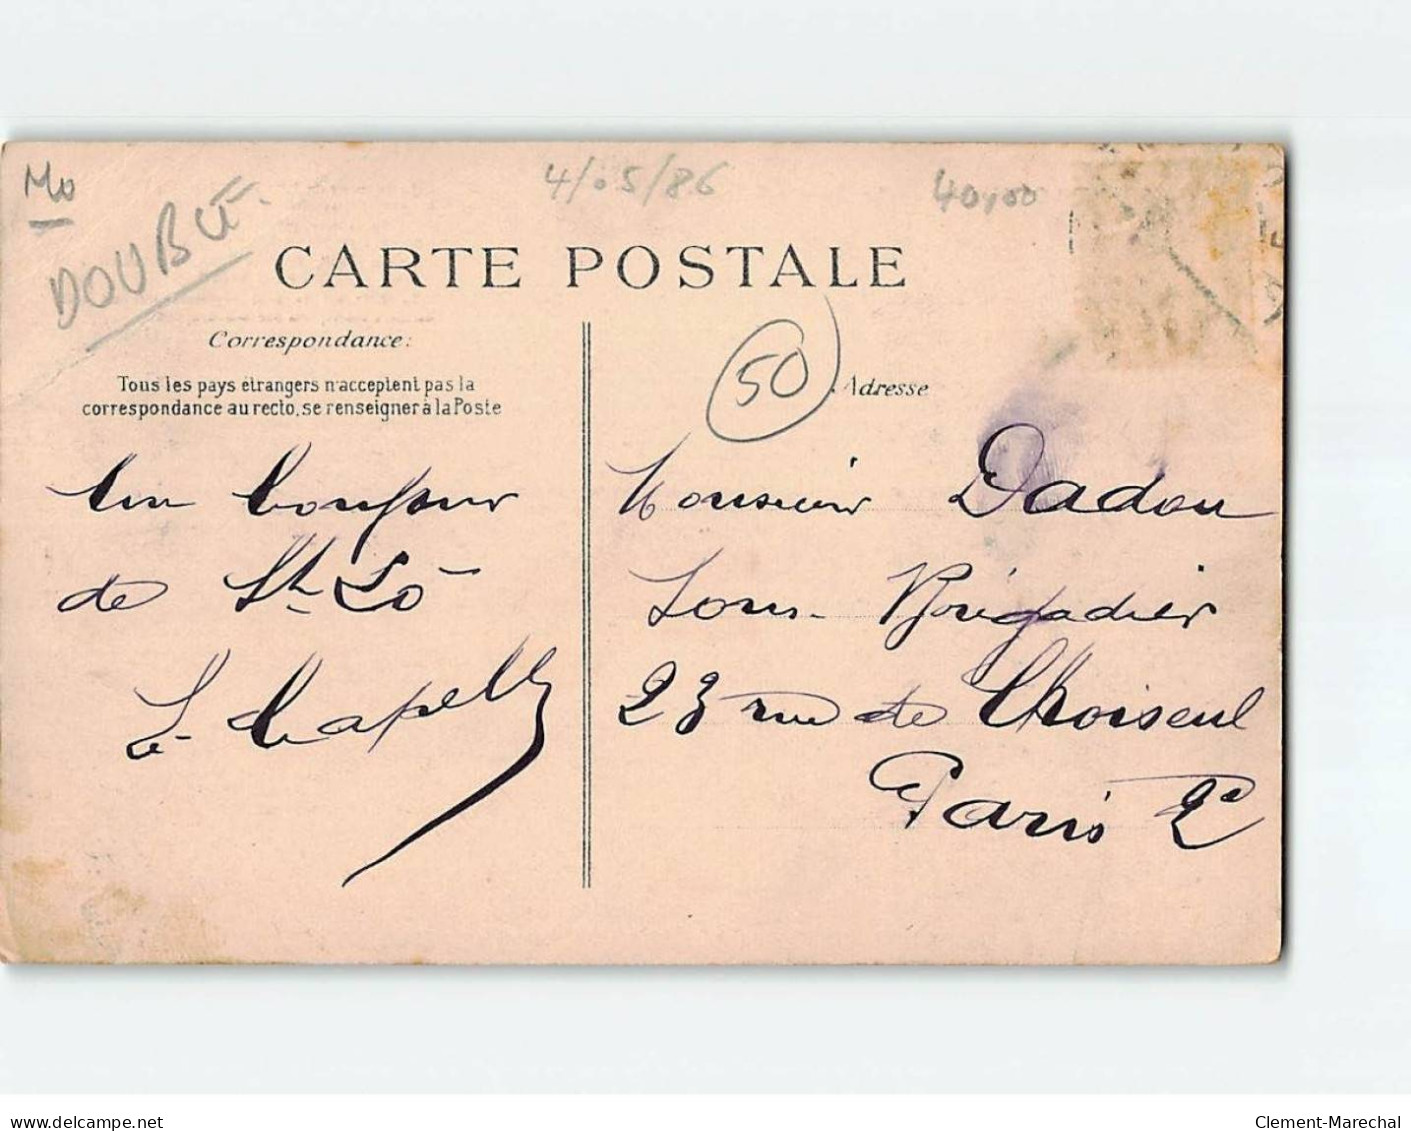 Mo
DOUBLE
4/05/86
40,00
CARTE POSTALE
Correspondance:
Tous les pays étrangers n'acceptent pas la
correspondance au recto, se renseigner à la Poste
50
Adresse
Un bonjour
de St Lô
L. Capelle
Monsieur Dadou
Sous-Brigadier
23 rue de Choiseul
Paris 2e
delcampe.net
Clement-Marechal